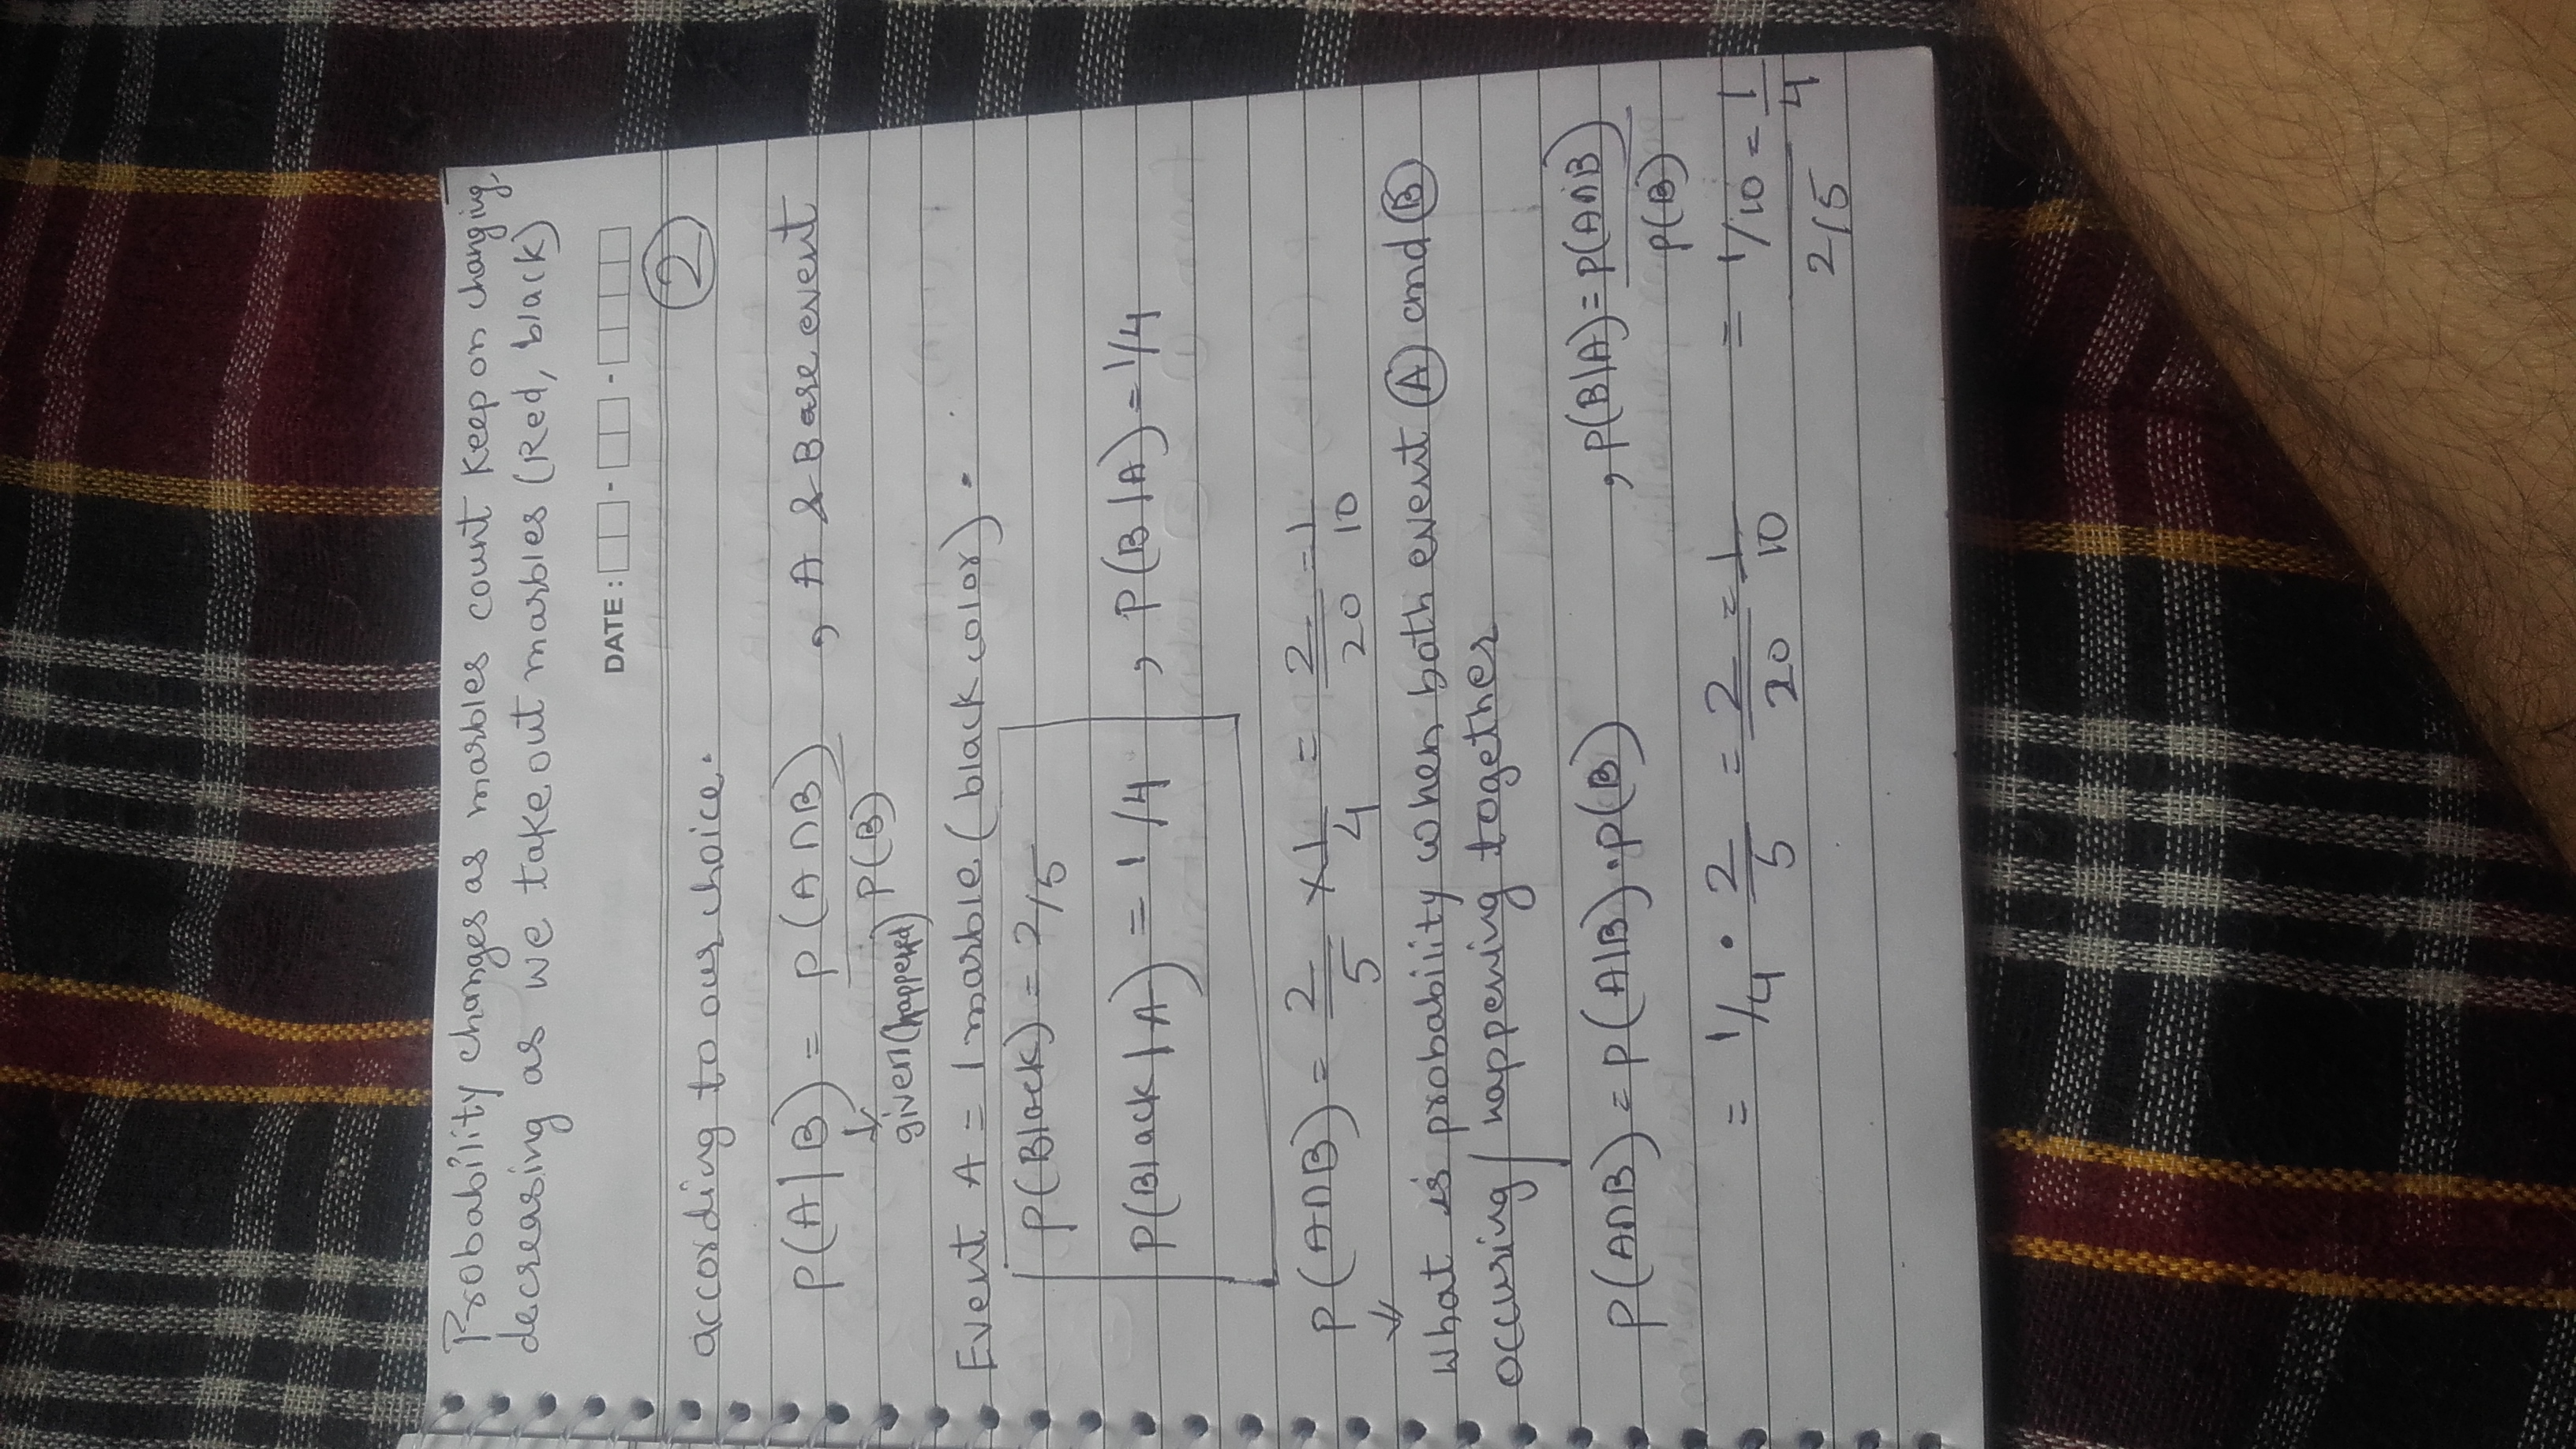 Probability changes as marbles count keep on changing,
decreasing as we take out marbles (Red, black)
DATE : - -
2
according to our choice.
P(A|B) = P(A∩B) / P(B) , A & Base event
given (happened)
Event A = 1 marble (black color).
P(Black) = 2/5
P(Black|A) = 1/4 , P(B|A) = 1/4
P(A∩B) = 2/5 × 1/4 = 2/20 = 1/10
What is probability when both event A and B
occuring/happening together
P(A∩B) = P(A|B) · P(B) , P(B|A) = P(A∩B) / P(B)
= 1/4 · 2/5 = 2/20 = 1/10 = 1/10 / 2/5 = 1/4